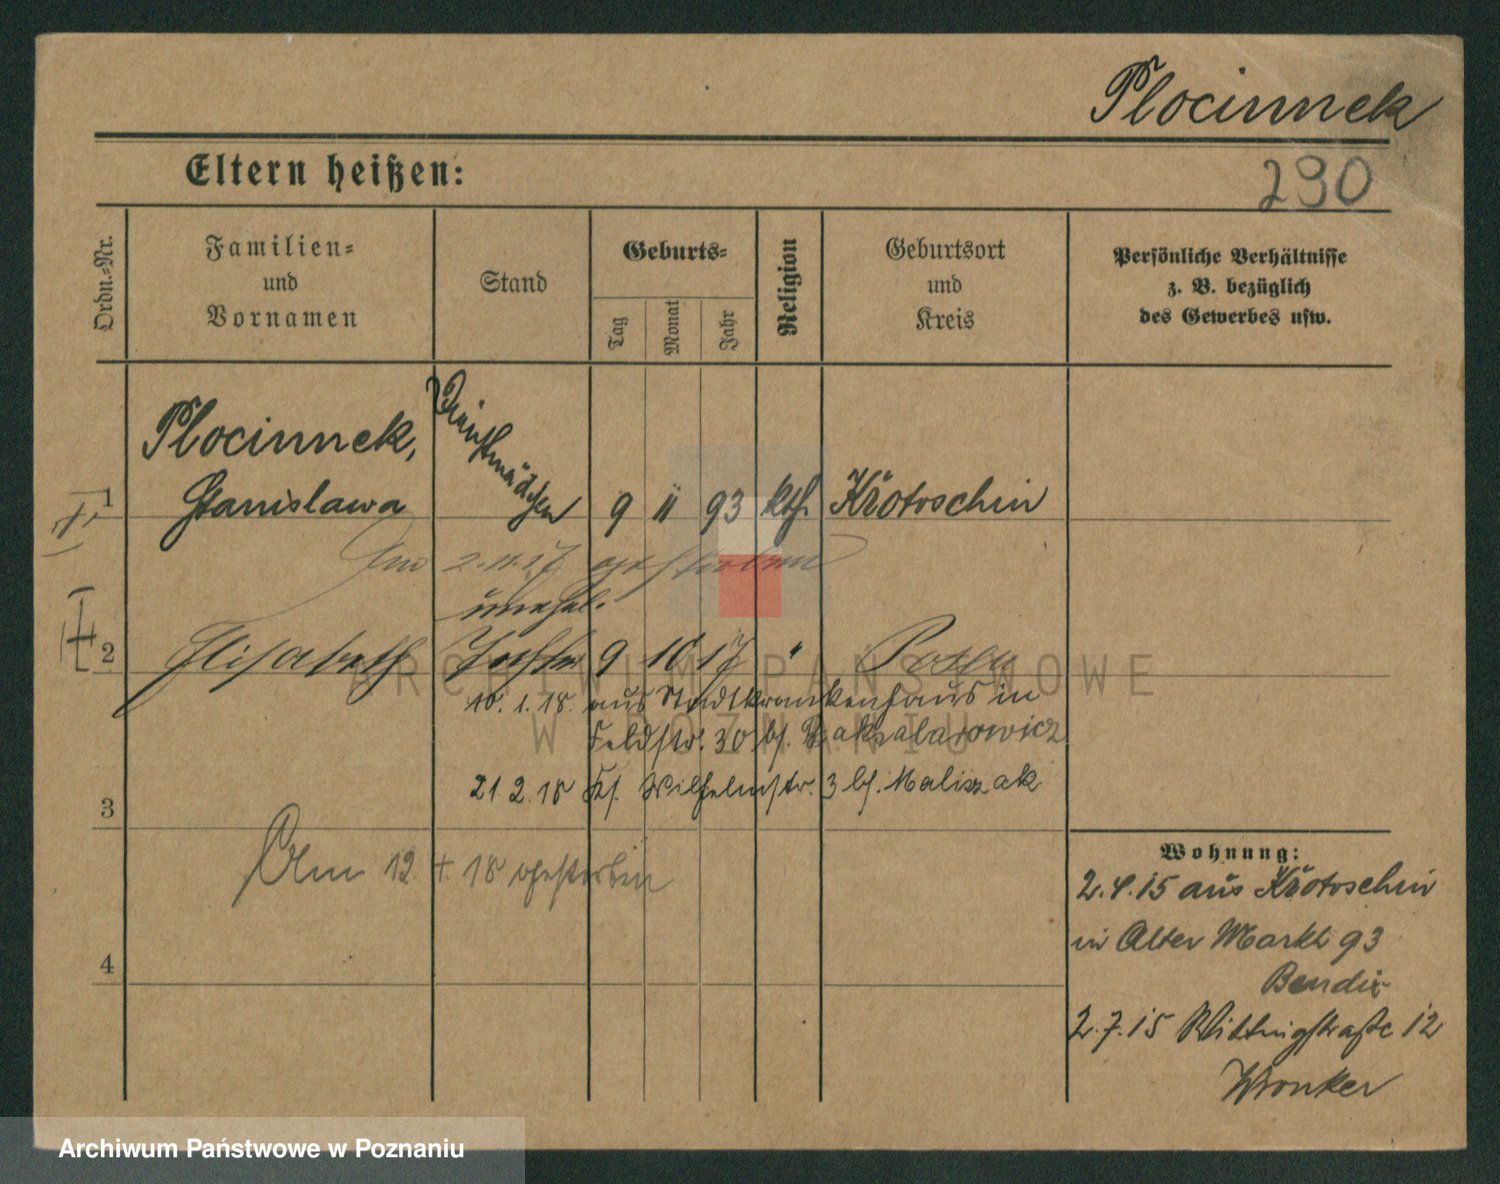 Plocinnek
Eltern heißen:
290
Ordn.-Nr.
Familien-
und
Vornamen
Stand
Geburts-
Tag
Monat
Jahr
Religion
Geburtsort
und
Kreis
Persönliche Verhältnisse
z. B. bezüglich
des Gewerbes usw.
Plocinnek,
Dienstmädchen
1 Stanislawa 9 11 93 kth. Krotoschin
Am 2.11.17 gestorben
unehel.
2 Elisabeth Tochter 9 10 17 " Posen
10.1.18. aus Stadtkrankenhaus in
Feldstr. 30 bf.
21 2.18 Kl. Wilhelmstr. 3 bf. Maliszak
3
Am 12. 18 gestorben
4
Wohnung:
2.4.15 aus Krotoschin
in Alter Markt 93
Bendix
2.7.15 Wittingstraße 12
Wronker
ARCHIWUM PAŃSTWOWE
W POZNANIU
Archiwum Państwowe w Poznaniu